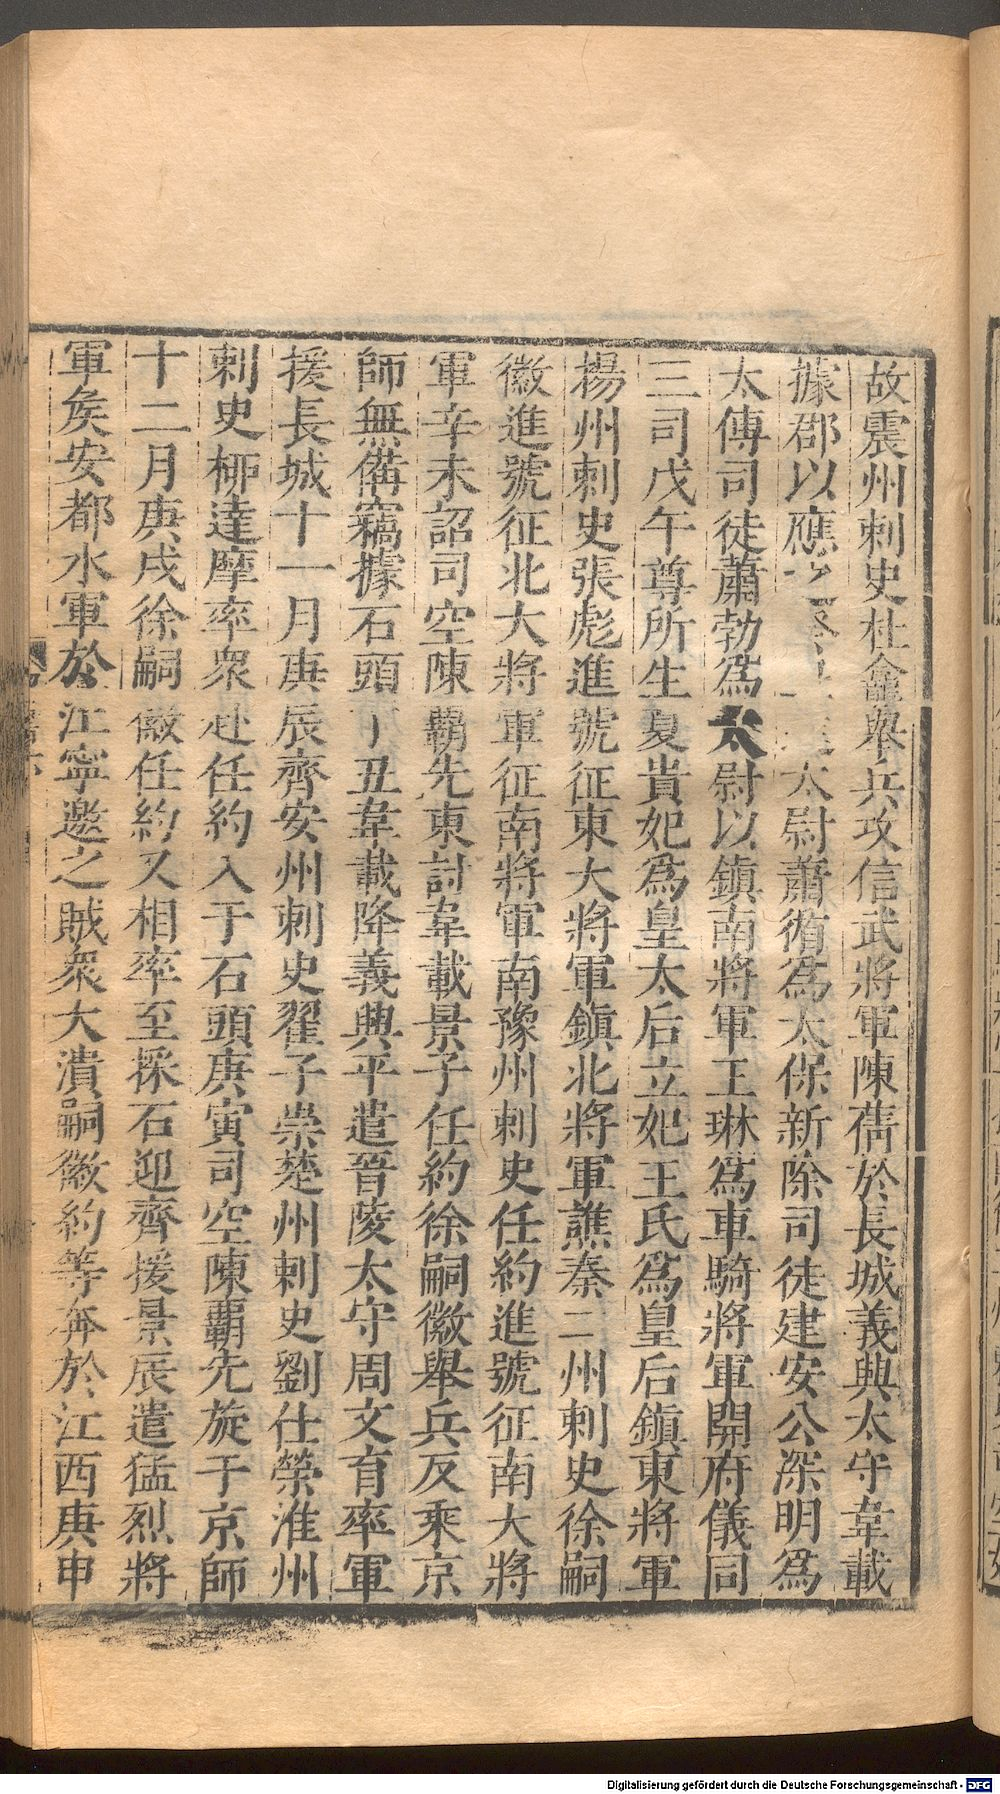 故震州刺史杜龕舉兵攻信武將軍陳蒨於長城義興太守韋載
據郡以應之太尉蕭循為太保新除司徒建安公深明為
太傅司徒蕭勃為太尉以鎮南將軍王琳為車騎將軍開府儀同
三司戊午尊所生夏貴妃為皇太后立妃王氏為皇后鎮東將軍
揚州刺史張彪進號征東大將軍鎮北將軍譙秦二州刺史徐嗣
徽進號征北大將軍征南將軍南豫州刺史任約進號征南大將
軍辛未詔司空陳霸先東討韋載景子任約徐嗣徽舉兵反乘京
師無備竊據石頭丁丑韋載降義興平遣晉陵太守周文育率軍
援長城十一月庚辰齊安州刺史翟子崇楚州刺史劉仕榮淮州
刺史柳達摩率衆赴任約入于石頭庚寅司空陳霸先旋于京師
十二月庚戌徐嗣徽任約又相率至採石迎齊援景辰遣猛烈將
軍矦安都水軍於江寧邀之賊衆大潰嗣徽約等奔於江西庚申
Digitalisierung gefördert durch die Deutsche Forschungsgemeinschaft - DFG